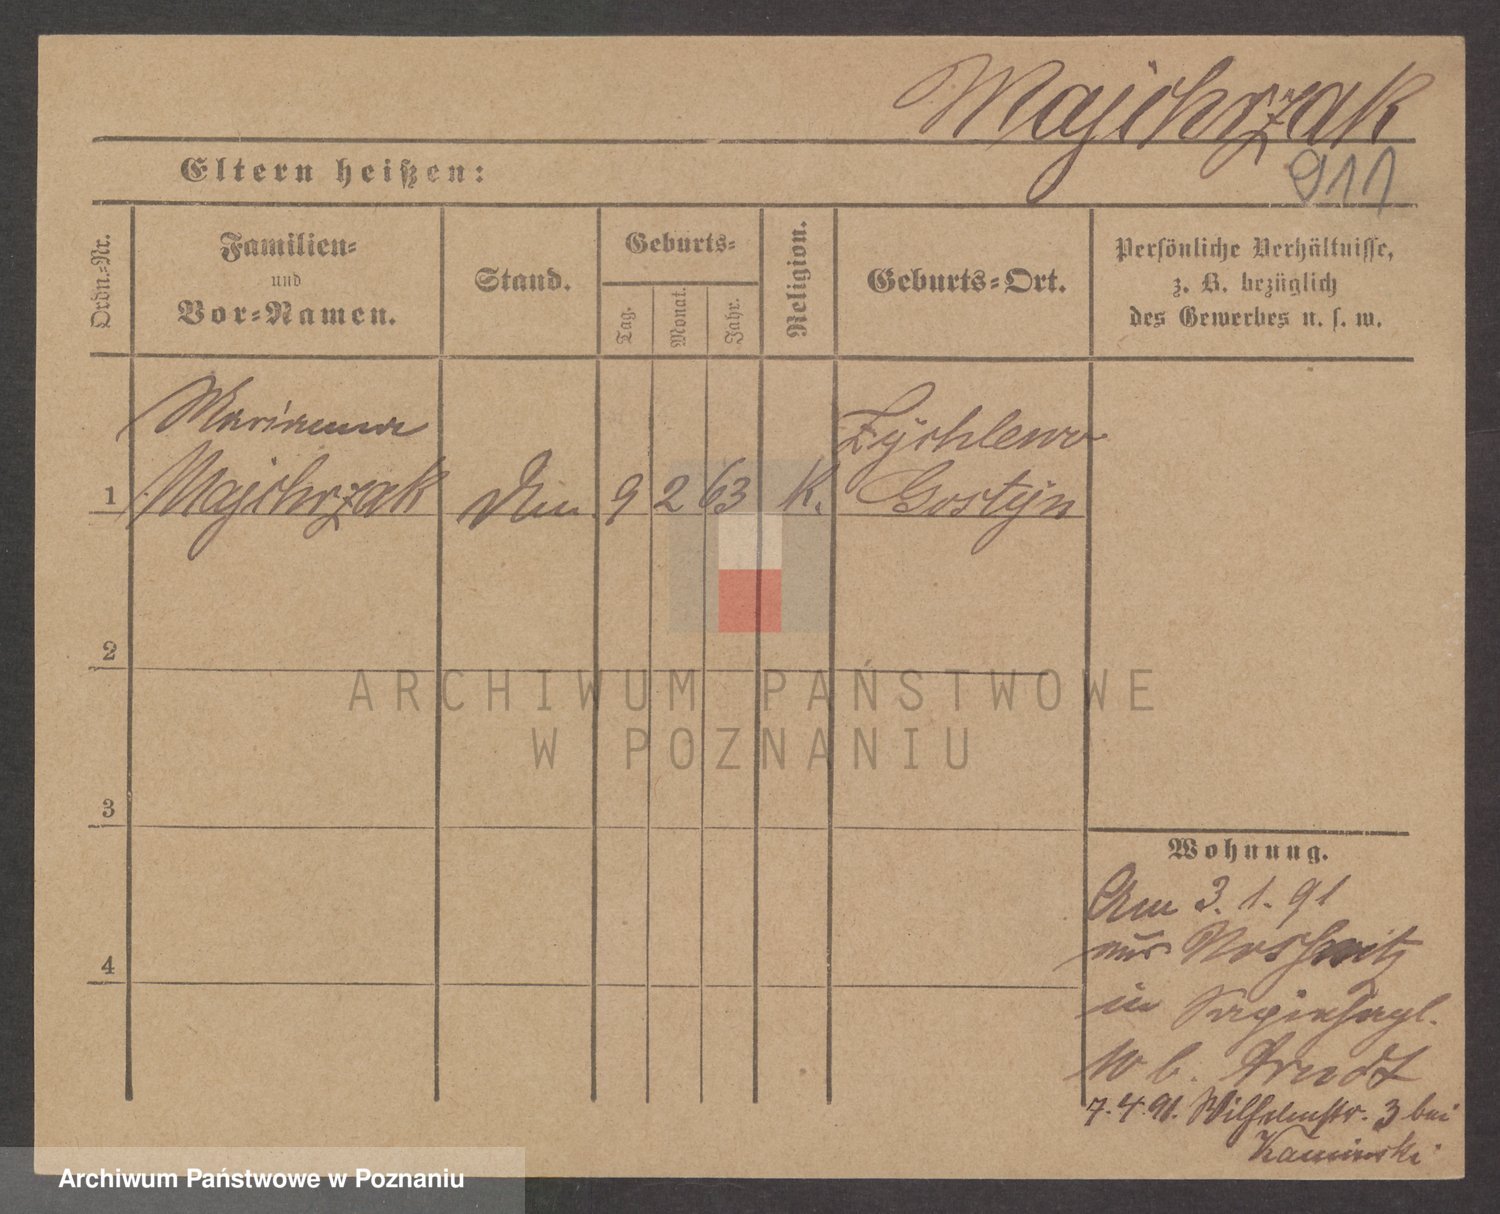 Majchrzak
911
Eltern heißen:
Ordn.-Nr.
Familien-
und
Vor-Namen.
Stand.
Geburts-
Tag.
Monat.
Jahr.
Religion.
Geburts-Ort.
Persönliche Verhältnisse,
z. B. bezüglich
des Gewerbes u. s. w.
Marianna
Majchrzak
9 2 63 K.
Żychlewo
Gostyn
1
2
3
4
ARCHIWUM PAŃSTWOWE
W POZNANIU
Wohnung.
Am 3.1.91
aus
in
b. Arndt
7.4.91. Wilhelmstr. 3 bei
Kaminski
Archiwum Państwowe w Poznaniu